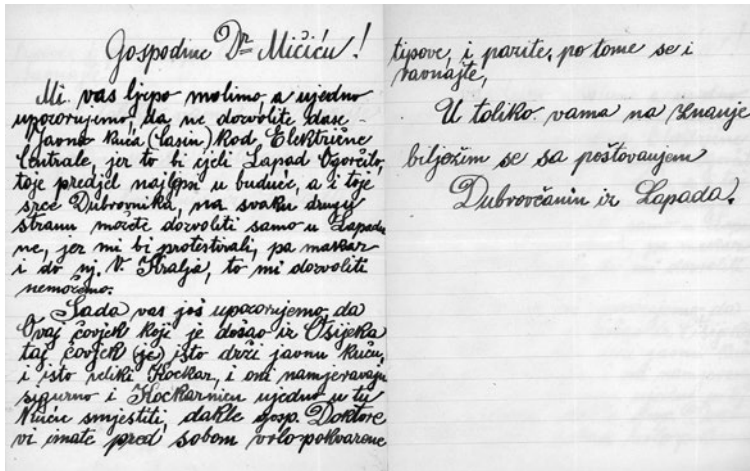 Gospodine Dr Mičiću!
Mi vas ljepo molimo, a ujedno
upozorujemo, da ne dozvolite dase
Javna kuća (Casin) kod Električne
Centrale, jer to bi cjeli Lapad Ogorčilo,
toje predjel najlepši u buduće, a i toje
srce Dubrovnika, na svaku drugu
stranu možete dozvoliti samo u Lapadu
ne, jer mi bi protestirali, pa makar
i do nj. V. Kralja, to mi dozvoliti
nemožemo.
Sada vas još upozorujemo, da
Ovaj čovjek koji je došao iz Osijeka
taj čovjek (je) isto drži javnu kuću,
i isto veliki Kockar, i oni namjeravaju
sigurno i Kockarnicu ujedno u tu
Kuću smjestiti, dakle gosp. Doktore
vi imate pred sobom vrlo pokvarene
tipove, i pazite, po tome se i
ravnajte,
U toliko vama na znanje
bilježim se sa poštovanjem
Dubrovčanin iz Lapada.